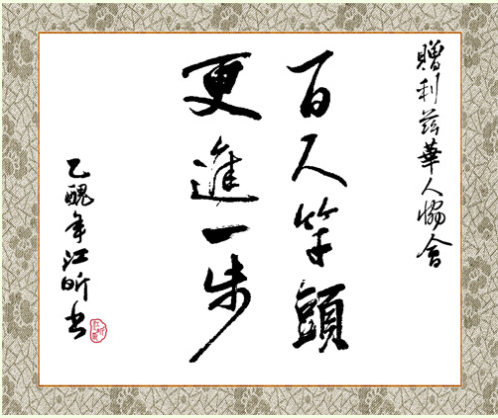 贈利茲華人協會
百尺竿頭
更進一步
乙醜年江昕书